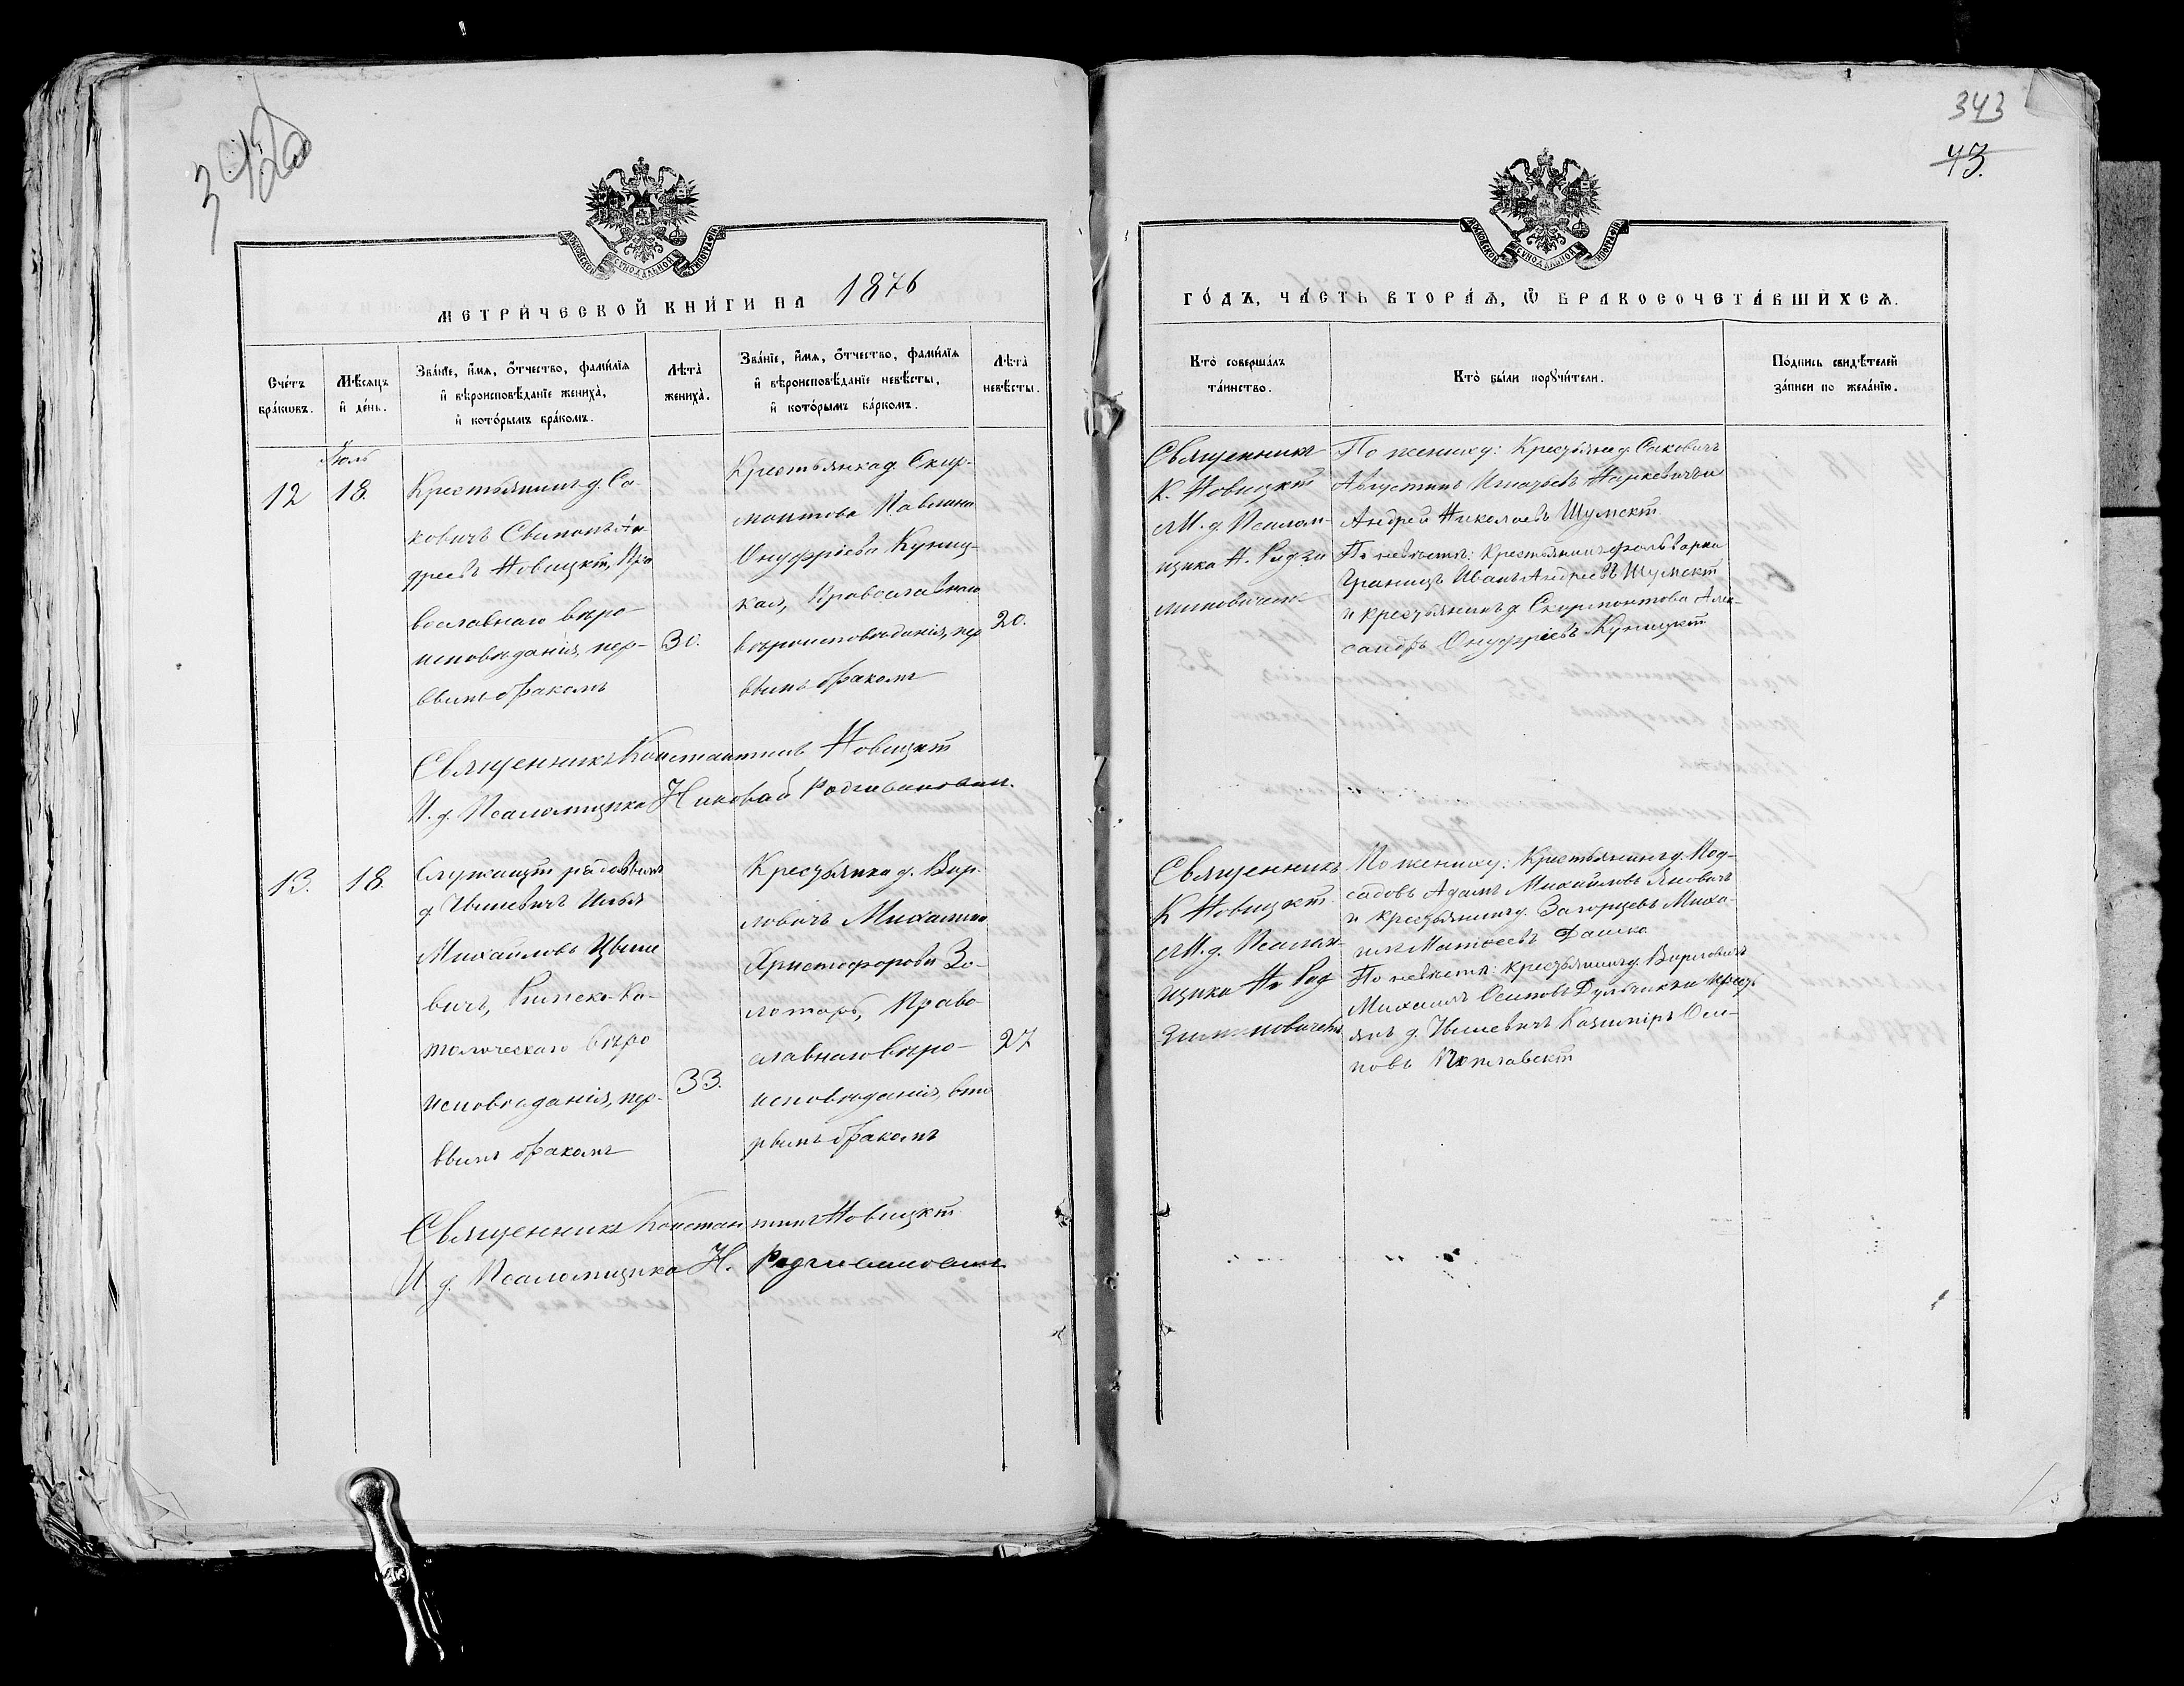 342 об
МОСКОВСКОЙ СѴНОДАЛЬНОЙ ТИПОГРАФІИ
МЕТРИ́ЧЕСКОЙ КНИ́ГИ НА 1876
Сче́тъ бра́кѡвъ.
Мѣ́сѧцъ и҆ де́нь.
Зва́нїе, и҆́мѧ, ѻ҆́тчество, фами́лїѧ
и҆ вѣроисповѣ́данїе жениха̀,
и҆ кото́рымъ бра́комъ.
Лѣ́та̀ жениха̀.
Зва́нїе, и҆́мѧ, ѻ҆́тчество, фами́лїѧ
и҆ вѣроисповѣ́данїе невѣ́сты,
и҆ кото́рымъ ба́ркомъ.
Лѣ́та̀ невѣ́сты.
Іюль
12
18.
Крестьянинъ д. Са-
ковичъ Симонъ Ан
дреевъ Новицкій, Пра
вославнаго вѣро-
исповѣданія, пер-
вымъ бракомъ
30.
Крестьянка д. Скир-
монтова Павлина
Онуфріева Куниц-
кая, Православнаго
вѣроисповѣданія, пер
вымъ бракомъ
20.
Священникъ Константинъ Новицкій
И. д. Псаломщика Николай Радзивиновичъ.
13.
18.
Служащій рядовымъ
д. Ившевичъ Илья
Михайловъ Ивше
вичъ, Римско-Ка-
толическаго вѣро
исповѣданія, пер-
вымъ бракомъ
33.
Крестьянка д. Вир-
ловичъ Михалина
Христофорова Зо-
лотарь, Право-
славнаго вѣро-
исповѣданія, вто
рымъ бракомъ
27
Священникъ Константинъ Новицкій
И. д. Псаломщика Н.
343
43.
МОСКОВСКОЙ СѴНОДАЛЬНОЙ ТИПОГРАФІИ
ГО́ДЪ, ЧА́СТЬ ВТОРА́Ѧ, Ѡ҆ БРАКОСОЧЕТА́ВШИХСѦ.
Кто̀ соверша́лъ та́инство.
Кто̀ бы́ли порꙋчи́тели.
По́дпись свидѣ́телей за́писи по жела́нїю.
Священникъ
К. Новицкій
съ И. д. Псалом-
щика Н. Радзи
миновичемъ
По жениху: Крестьяне д. Саковичъ
Августинъ Игнатьевъ Наркевичъ и
Андрей Николаевъ Шумскій
По невѣстѣ: Крестьянинъ фольварка
Границъ Иванъ Андреевъ Шумскій
и крестьянинъ д. Скирмонтова Алек-
сандръ Онуфріевъ Куницкій
Священникъ
К Новицкій
съ И. д. Псалом-
щика Н. Рад
зиминовичемъ
По жениху: Крестьянинъ д. Под-
садовъ Адамъ Михайловъ Яновичъ
и крестьянинъ д. Загорцевъ Миха-
илъ Матвеевъ Дашко
По невѣстѣ: крестьянинъ д. Вирловичъ
Михаилъ Осиповъ и кресть
янъ д. Ившевичъ Казиміръ Оси-
повъ Поплавскій